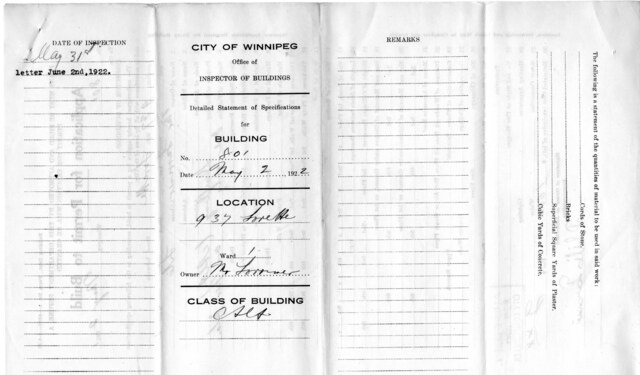 DATE OF INSPECTION
May 31st
letter June 2nd, 1922.
CITY OF WINNIPEG
Office of
INSPECTOR OF BUILDINGS
Detailed Statement of Specifications
for
BUILDING
No. 801
Date May 2 1922
LOCATION
937
Ward 1
Owner Mr
CLASS OF BUILDING
Alt
REMARKS
The following is a statement of the quantities of material to be used in said work:
Cords of Stone.
Bricks
Superficial Square Yards of Plaster.
Cubic Yards of Concrete.
Application for Permit to Build